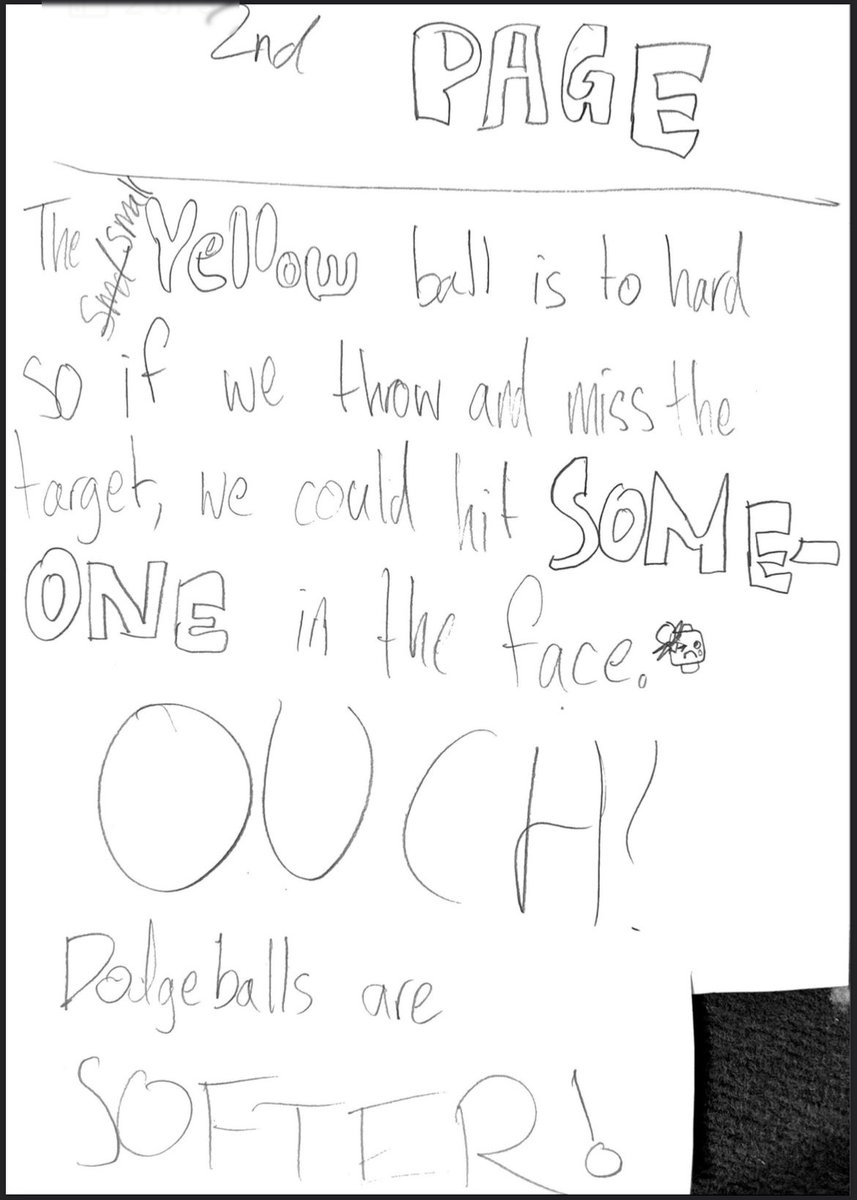 2nd PAGE
The Yellow ball is to hard
so if we throw and miss the
target, we could hit SOME-
ONE in the face.
OUCH!
Dodgeballs are
SOFTER!